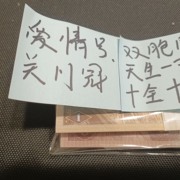 爱情号、
关门冠
双胞
天生一
十全十